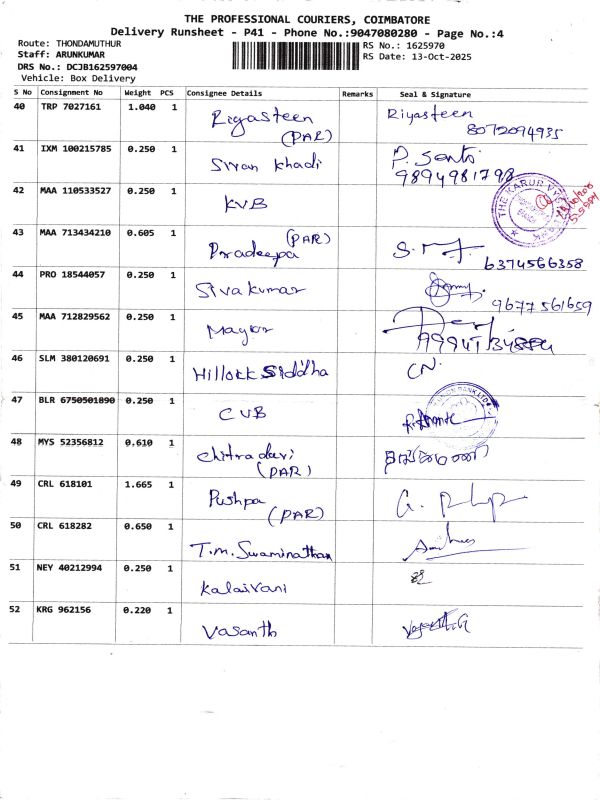 THE PROFESSIONAL COURIERS, COIMBATORE
Delivery Runsheet - P41 - Phone No.:9047080280 - Page No.:4
Route: THONDAMUTHUR
RS No.: 1625970
Staff: ARUNKUMAR
RS Date: 13-Oct-2025
DRS No.: DCJB162597004
Vehicle: Box Delivery
S No Consignment No Weight PCS Consignee Details Remarks Seal & Signature
40 TRP 7027161 1.040 1 Riyasteen Riyasteen
(PAR) 8072094935
41 IXM 100215785 0.250 1 Sivan Khadi P. Santi
9894981798
42 MAA 110533527 0.250 1 KVB THE KARUR
43 MAA 713434210 0.605 1 (PAR)
Pradeepa 6374566358
44 PRO 18544057 0.250 1 Sivakumar
9677561659
45 MAA 712829562 0.250 1
46 SLM 380120691 0.250 1 Hillokk Siddha CN.
47 BLR 6750501890 0.250 1 CUB
48 MYS 52356812 0.610 1 Chitradevi
(PAR)
49 CRL 618101 1.665 1 Pushpa
(PAR)
50 CRL 618282 0.650 1 T.m. Swaminathan
51 NEY 40212994 0.250 1 Kalaivani
52 KRG 962156 0.220 1 Vasanth